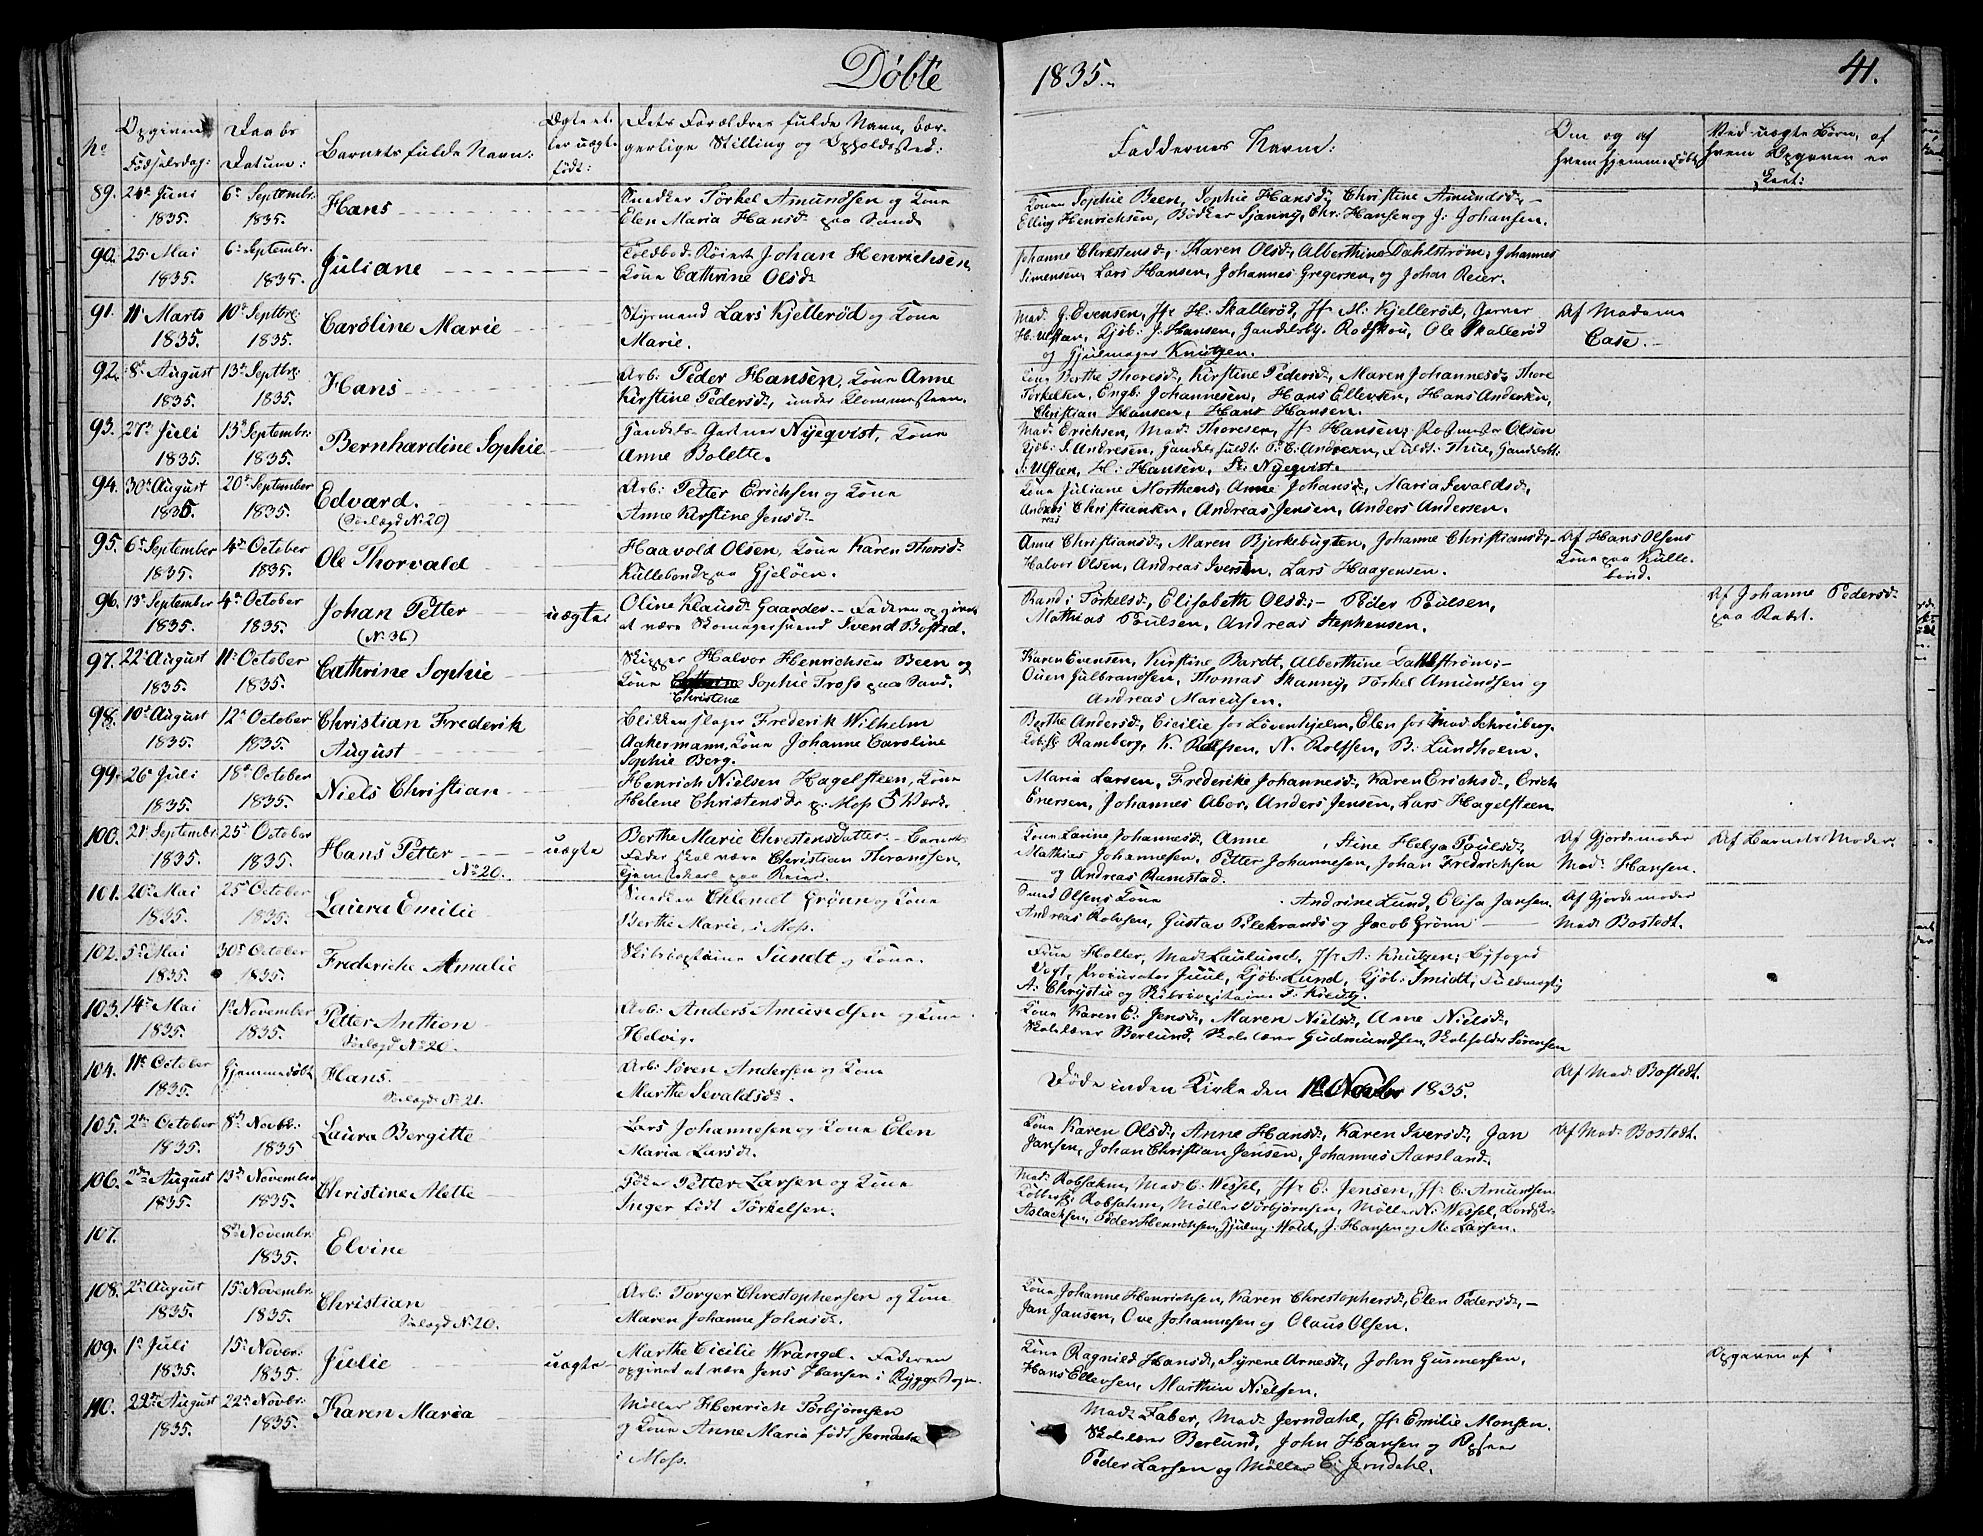 Døbte
1835.
41.
No
Opgiven Fødselsdag:
Daabs Datum:
Barnets fulde Navn:
Ægte eller uægte født:
Dets Forældres fulde Navn, borgerlige Stilling og Opholdssted:
Faddernes Navn:
Om og af hvem hjemmedøbt
Ved uægte Børn, af hvem Opgaven er skeet:
89. 24de Juni 1835. 6te Septembr. 1835. Hans
Snedker Törkel Amundsen og Kone
Elen Maria Hansd. paa Sand
Kone Sophie Been, Sophie Hansd., Christine Amundsd.,
Elling Henrichsen, Bødker Sjanny, Chr: Hansen og J: Johansen.
90. 25. Mai 1835. 6te Septembr. 1835. Juliane
Toldbod Røiert Johan Henrichsen,
Kone Cathrine Olsd.
Johanne Chrestensd., Karen Olsd., Alberthine Dahlström, Johannes
Simensen, Lars Hansen, Johannes Gregersen, og Johan Reier.
91. 11te Marts 1835. 10de Septbr. 1835. Caroline Marie
Styrmand Lars Kjellerød og Kone
Marie.
Mad. G. Evensen, Jfr H: Skallerød, Jfr M: Kjellerød, Garver
H. Ulsten, Kjøb: J: Hansen, Handelsb. Rodskou, Ole Skallerød
og Hjulmager Knutzen.
Af Madame
Case.
92. 8de August 1835. 13de Septbr. 1835. Hans
Arb: Peder Hansen, Kone Anne
Kirstine Pedersd., under Blommesteen.
Kone Berthe Thoresd., Kirstine Pedersd., Maren Johannesd., Thore
Törkelsen, Engb. Johannesen, Hans Ellevsen, Hans Andersen,
Christian Hansen, Hans Hansen.
93. 27de Juli 1835. 13de Septembr. 1835. Bernhardine Sophie
Handels-Gartner Nyeqvist, Kone
Anne Bolette.
Mad: Erichsen, Mad: Thoresen, Jfr Hansen, Postmester Olsen
Kjøb: S. Andresen, Handelsfuldt: P. C. Andresen, Fuldt: Thue, Handelsb:
J: Ulsten, H: Hansen, St: Nyeqvist.
94. 30te August 1835. 20de September 1835. Edvard.
(Sølægd No 20)
Arb: Petter Erichsen og Kone
Anne Kirstine Jensd.
Kone Juliane Morthens, Anne Johansd., Maria Sevaldsd.,
Andreas Christiansen, Andreas Jensen, Anders Andersen.
95. 6te September 1835. 4de October 1835. Ole Thorvald
Haavold Olsen, Kone Karen Thorsd.
Kullebond paa Gjelöen.
Anne Christiansd., Maren Bjerkebugten, Johanne Christiansd.,
Halvor Olsen, Andreas Iversen, Lars Haagensen.
Af Hans Olsens
Kone paa Kulle-
bund.
96. 13de September 1835. 4de October 1835. Johan Petter
(No 36)
uægte
Oline Klausd. Gaarder. Faderen opgives
at være Skomagersvend Svend Bosted.
Randi Törkelsd., Elisabeth Olsd., Peder Poulsen,
Mathias Poulsen, Andreas Stephensen.
Af Johanne Pedersd.
paa Rabet.
97. 22de August 1835. 11te October 1835. Cathrine Sophie
Skipper Halvor Henrichsen Been og
Kone Sophie Tross paa Sand.
Christine
Karen Evensen, Kirstine Bardt, Alberthine Dahlström,
Ouen Gulbrandsen, Thomas Skanny, Törkel Amundsen og
Andreas Marcusen.
98. 10de August 1835. 12te October 1835. Christian Frederik
August
Blikkenslager Frederik Wilhelm
Aakermann, Kone Johanne Caroline
Sophie Berg.
Berthe Andersd., Cicilie for Lövenhjelm, Elen for Mad. Schreiberg.
Ramberg, K. Rolfsen, N. Rolfsen, B. Lundholm.
99. 26de Juli 1835. 18de October 1835. Niels Christian
Henrich Nielsen Hagelsteen, Kone
Helene Christensd. p: Moss Værk.
Maria Larsen, Frederike Johannesd., Karen Erichsd., Erich
Enersen, Johannes Abor, Anders Jensen, Lars Hagelsteen.
100. 21de Septembr. 1835. 25de October 1835. Hans Petter
No 20.
uægte
Berthe Marie Chrestensdatter. Barnets
Fader skal være Christian Thronssen,
Kone Karine Johannesd., Anne , Stine Helga Poulsd.,
Mathias Johannesen, Petter Johannesen, Johan Fredrichsen
og Andreas Ramstad.
Af Gjordemoder
Mad: Hansen.
Af Barnets Moder.
101. 20de Mai 1835. 25de October 1835. Laura Emilie
Snedker Ehlendt Grönn og Kone
Berthe Marie, i Moss.
Smed Olsens Kone Andrine Lund, Elisa Jansen.
Andreas Rolvsen, Gustav Pilekrands og Jacob Grönn
Af Gjordemoder
Mad: Bostedt.
102. 5te Mai 1835. 30te October 1835. Frederiche Amalie
Skibskaptaine Sundt og Kone.
Frue Holler, Mad. Laulund, Jfr A. Knutzen, Byfoged
Vogt, Procurator Juul, Kjöb: Lund, Kjöb: Smidt, Fuldmægtig
A: Chrystie og Skibscapitain F. Kreutz.
103. 14de Mai 1835. 1te November 1835. Petter Anthon
Sølægd No 20.
Arb: Anders Amundsen og Kone
Helvig.
Kone Karen E: Jensd., Maren Nielsd., Anne Nielsd.,
Skolelærer Berlund, Skolelærer Gudmundsen, Skoleholder Sörensen
104. 11te October 1835. Hjemmedøbt Hans.
Sølægd No 21.
Arb: Søren Andersen og Kone
Marthe Sevaldsd.
Døde inden Kirke den 1te Novbr 1835.
Af Mad: Bostedt.
105. 2den October 1835. 8de Novbr. 1835 Laura Bergitte
Lars Johannesen og Kone Elen
Maria Larsd.
Kone Karen Olsd., Anne Hansd., Karen Iversd., Jan
Jansen, Johan Christian Jensen, Johannes Aarsland.
Af Mad: Bostedt.
106. 2den August 1835. 13de November 1835. Christine Mette
Petter Larsen og Kone
Inger født Törkelsen.
Mad: Robsahm, Mad: C: Wessel, Jfr E: Jensen, Jfr C: Amundsen
Robsahm, Möller Torbjörnsen, Möller N: Wessel,
Aslachsen, Peder Henrichsen, Hjulmg. Wold, J: Hansen og M: Larsen.
107. 8de Novembr. 1835. Elvine
108. 2den August 1835. 15de Novembr. 1835. Christian
Sølægd No 20.
Arb: Torger Chrestophersen og Kone
Maren Johanne Johnsd.
Kone Johanne Henrichsen, Karen Chrestophersd., Elen Pedersd.,
Jan Jansen, Ove Johannesen og Olaus Olsen.
109. 1te Juli 1835. 15de Novbr. 1835. Julie
uægte
Marthe Cicilie Wrangel. Faderen
opgivet at være Jens Hansen i Rygge Sogn.
Kone Ragnild Hansd., Syrene Arnesd., John Gunnersen,
Hans Ellevsen, Marthin Nielsen.
Opgaven af
110. 22de August 1835. 22de Novbr. 1835. Karen Maria
Möller Henrich Törbjörnsen
og Kone Anne Maria født Jerndahl
i Moss.
Mad: Faber, Mad: Jerndahl, Jfr Emilie Monsen.
Skolelærer Berlund, John Hansen og
Peder Larsen og Möller C: Jerndahl.